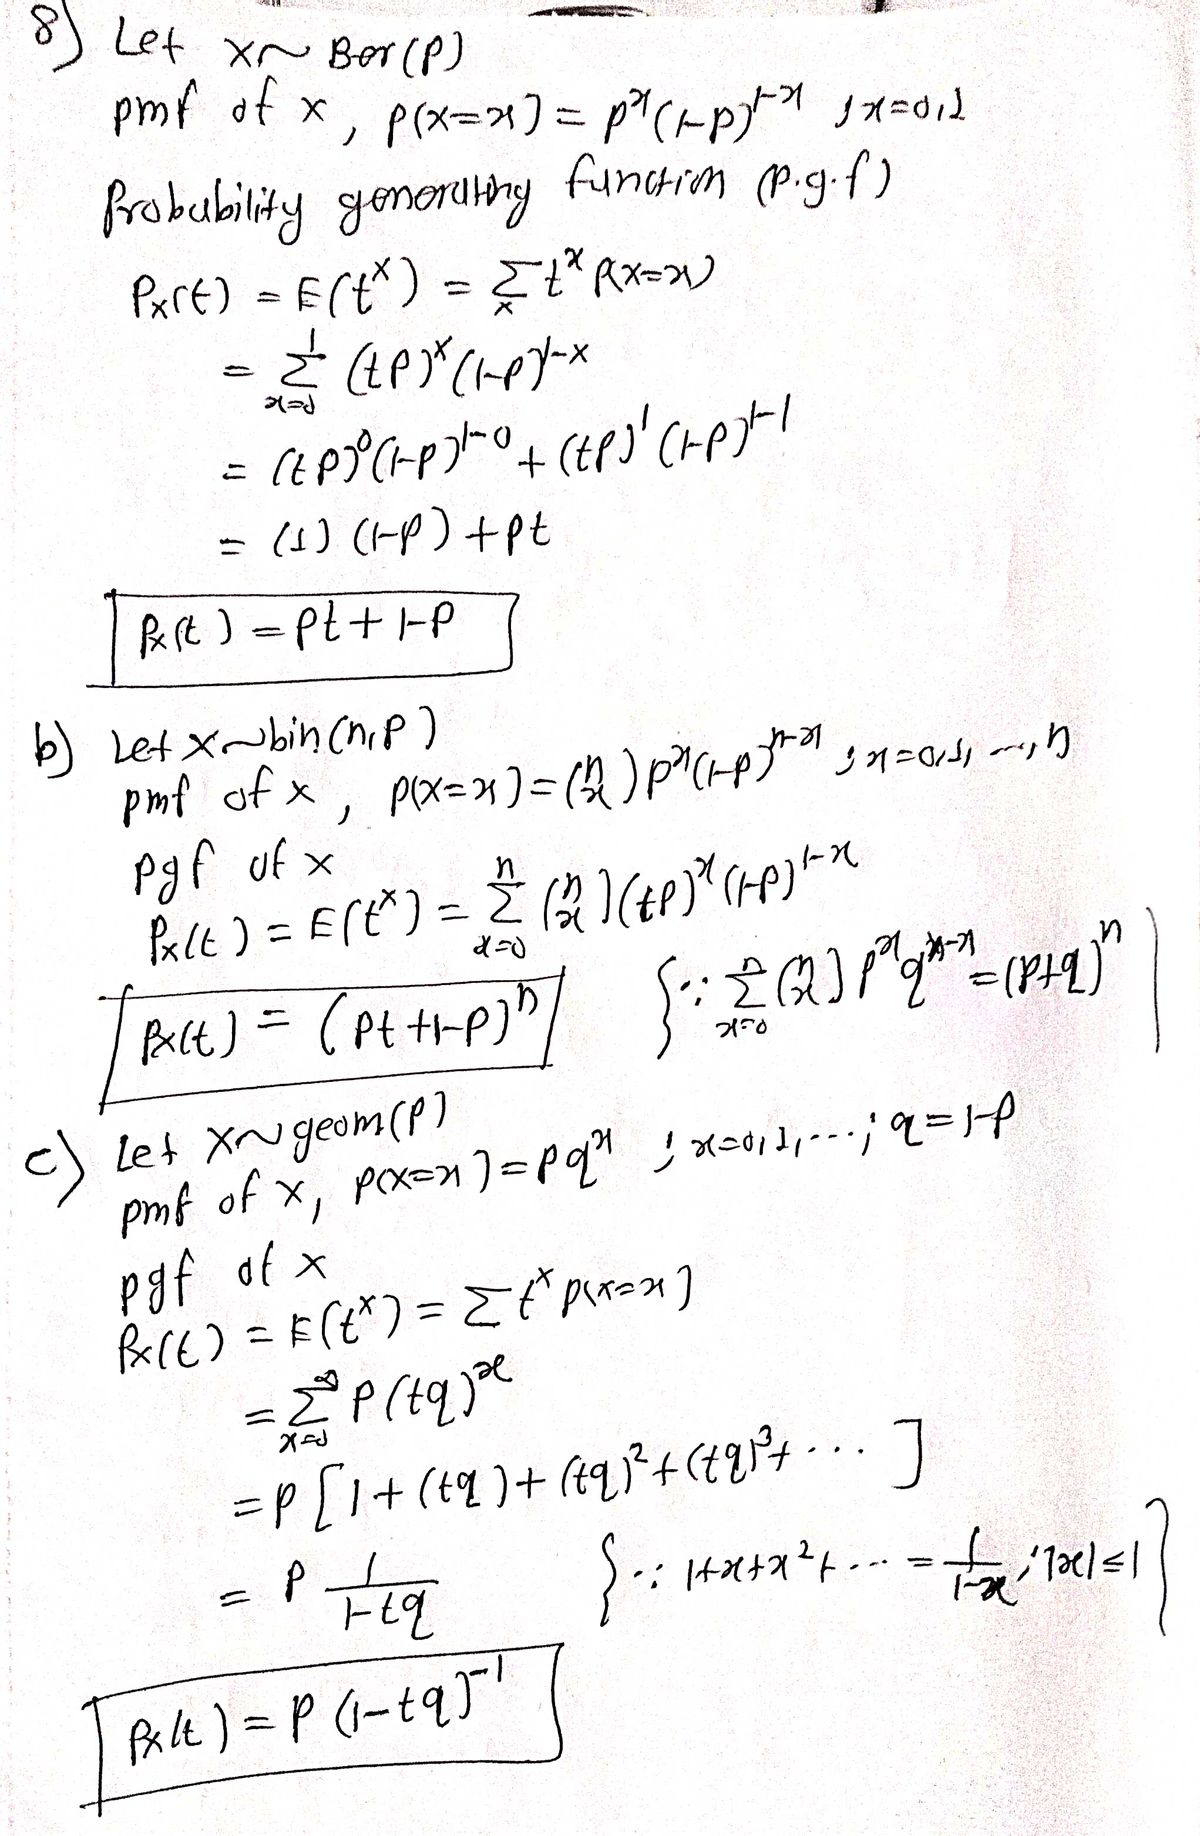 8) Let X ~ Ber(P)
pmf of x, P(X=x) = p^x (1-p)^{1-x} ; x=0,1
Probability generating function (p.g.f)
P_X(t) = E(t^X) = Σ_x t^x P(X=x)
= Σ_{x=0}^{1} (tp)^x (1-p)^{1-x}
= (tp)^0 (1-p)^{1-0} + (tp)^1 (1-p)^{1-1}
= (1) (1-p) + pt
P_X(t) = pt + 1-p
b) Let X ~ bin(n,p)
pmf of x, P(X=x) = (n x) p^x (1-p)^{n-x} ; x=0,1, ..., n
pgf of x
P_X(t) = E(t^X) = Σ_{x=0}^{n} (n x) (tp)^x (1-p)^{1-x}
P_X(t) = (pt + 1-p)^n {∵ Σ_{x=0}^{n} (n x) p^x q^{n-x} = (p+q)^n}
c) Let X ~ geom(p)
pmf of X, P(X=x) = p q^x ; x=0,1, ... ; q=1-p
pgf of x
P_X(t) = E(t^X) = Σ t^x P(X=x)
= Σ_{x=0}^{∞} P (tq)^x
= P [1 + (tq) + (tq)^2 + (tq)^3 + ... ]
= P 1/(1-tq) {∵ 1+x+x^2+ ... = 1/(1-x) ; |x| ≤ 1}
P_X(t) = P (1-tq)^{-1}